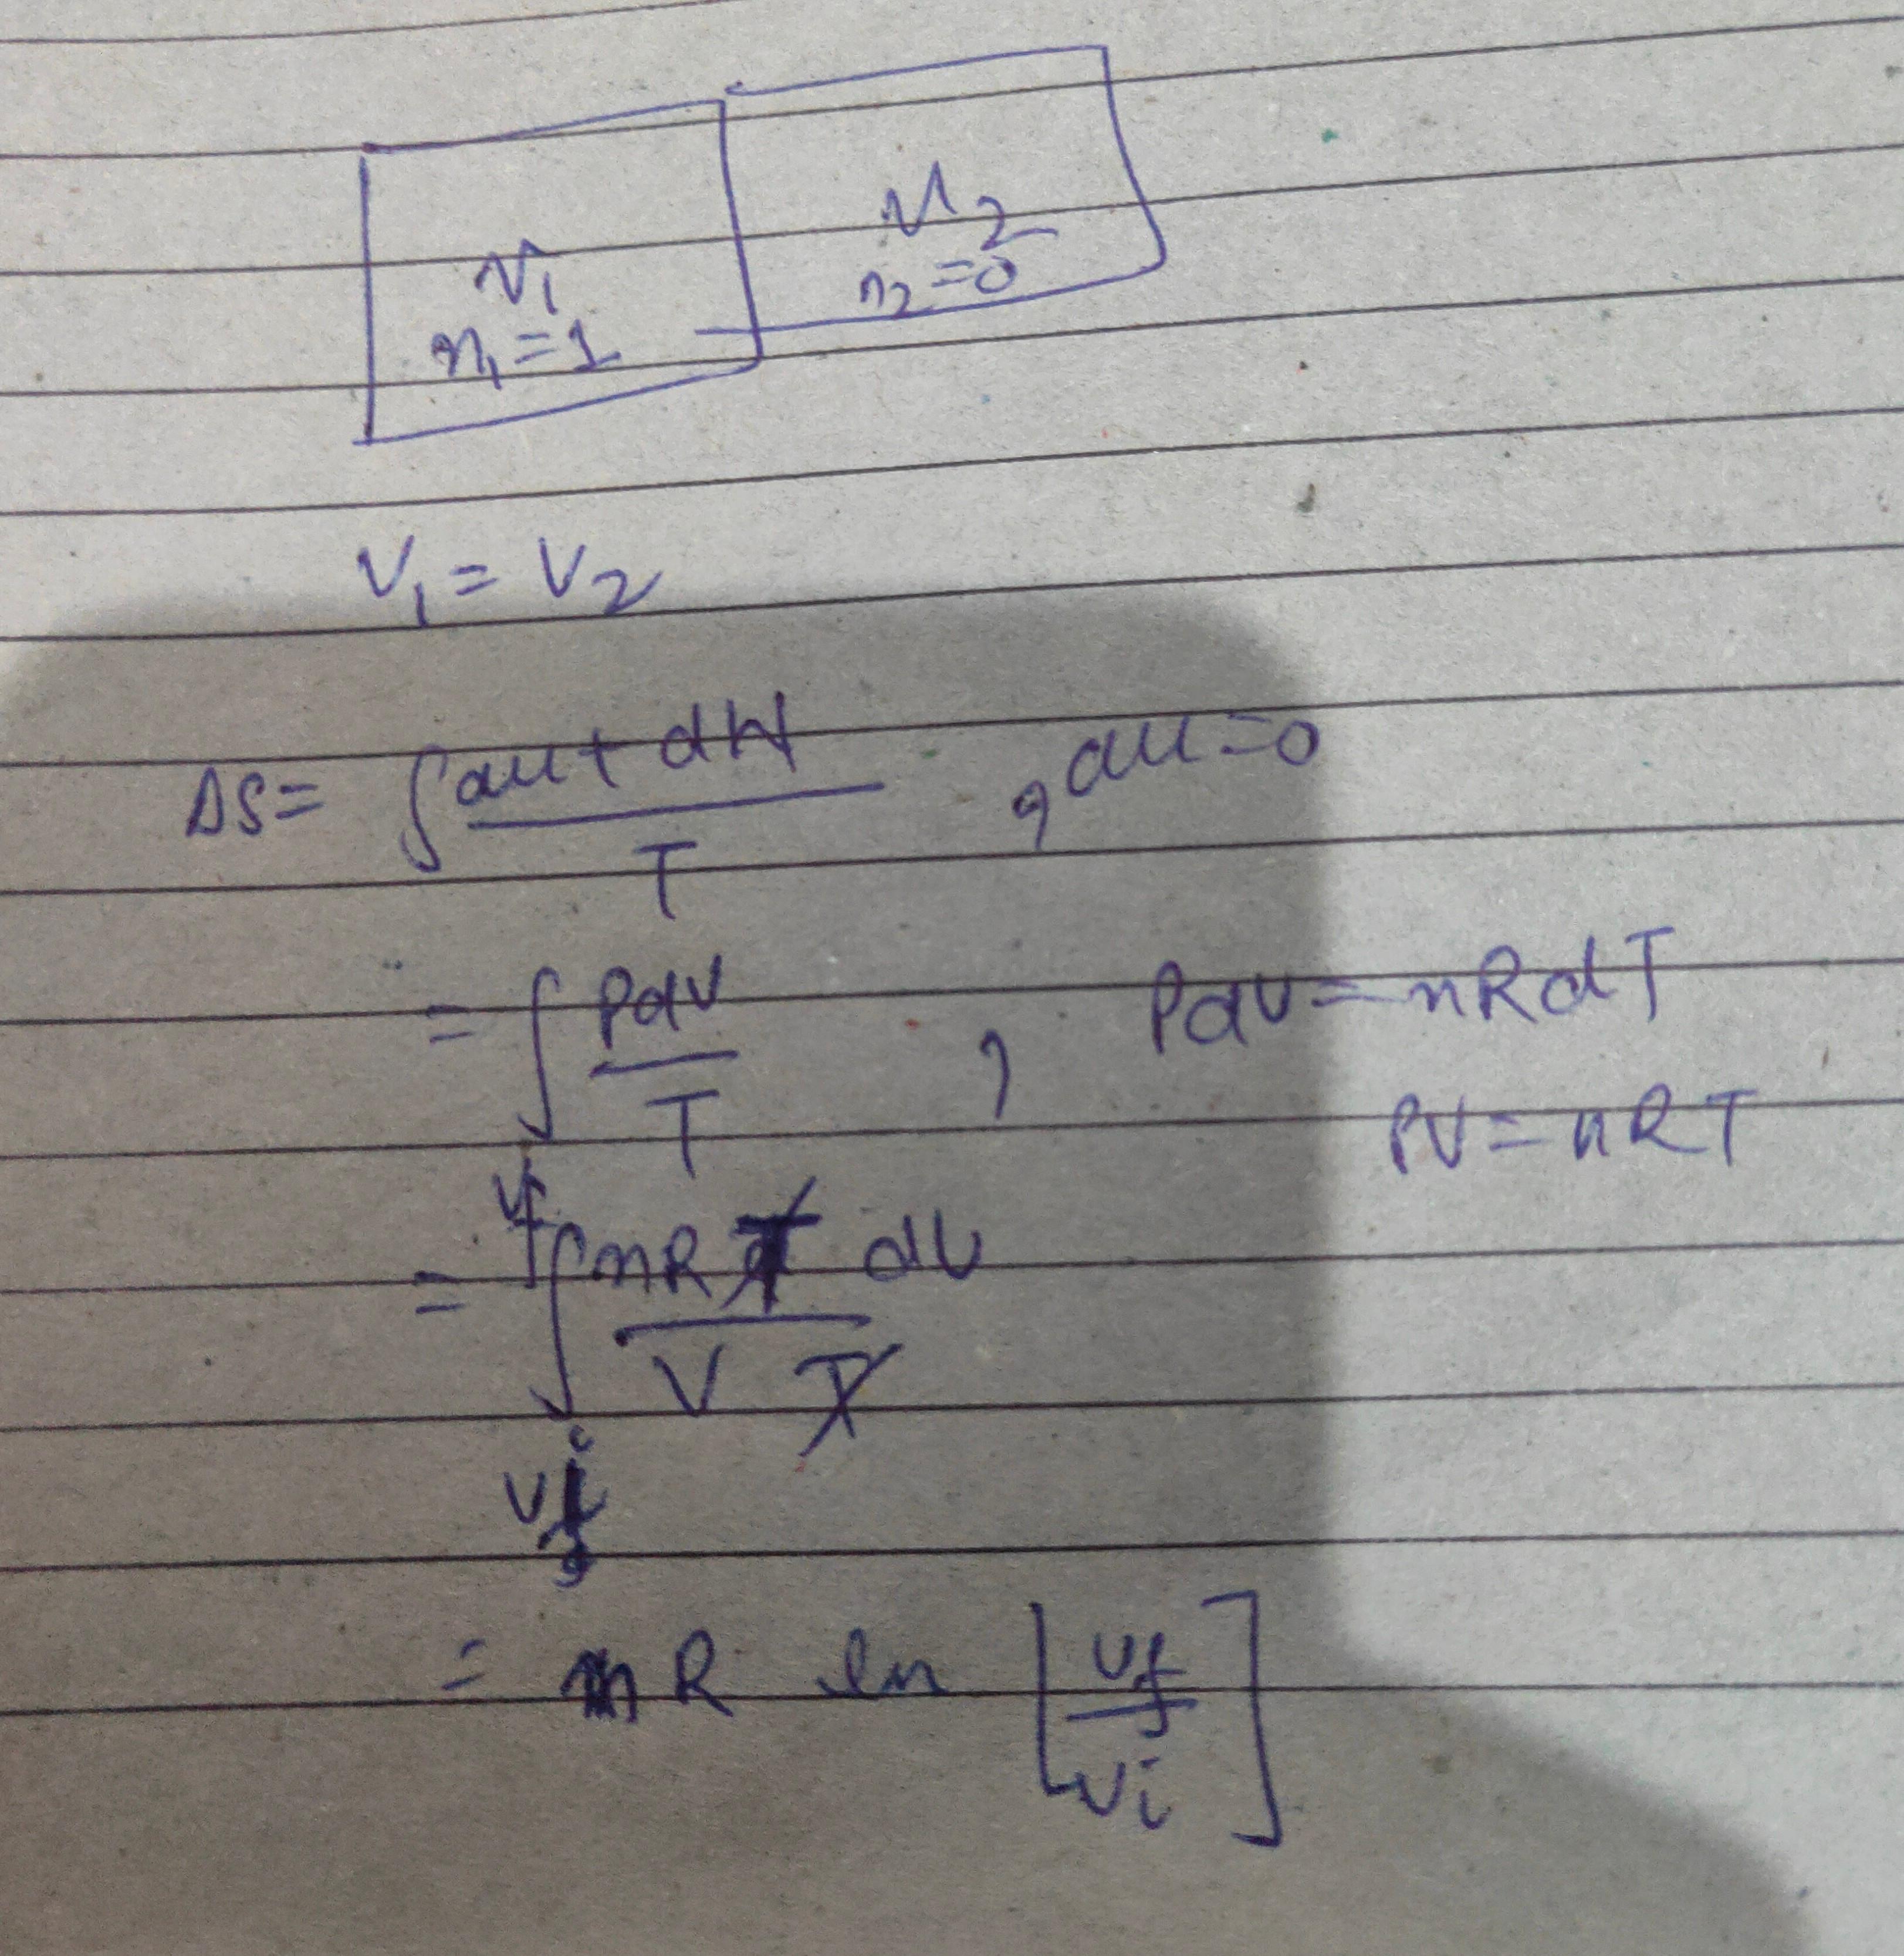 V₁
n₁=1
V₂
n₂=0
V₁ = V₂
ΔS = ∫ (du + dW) / T , du=0
= ∫ PdV / T , PdV = nRdT
PV = nRT
= ∫_{Vi}^{Vf} nRT dV / V T
= nR ln [Vf / Vi]